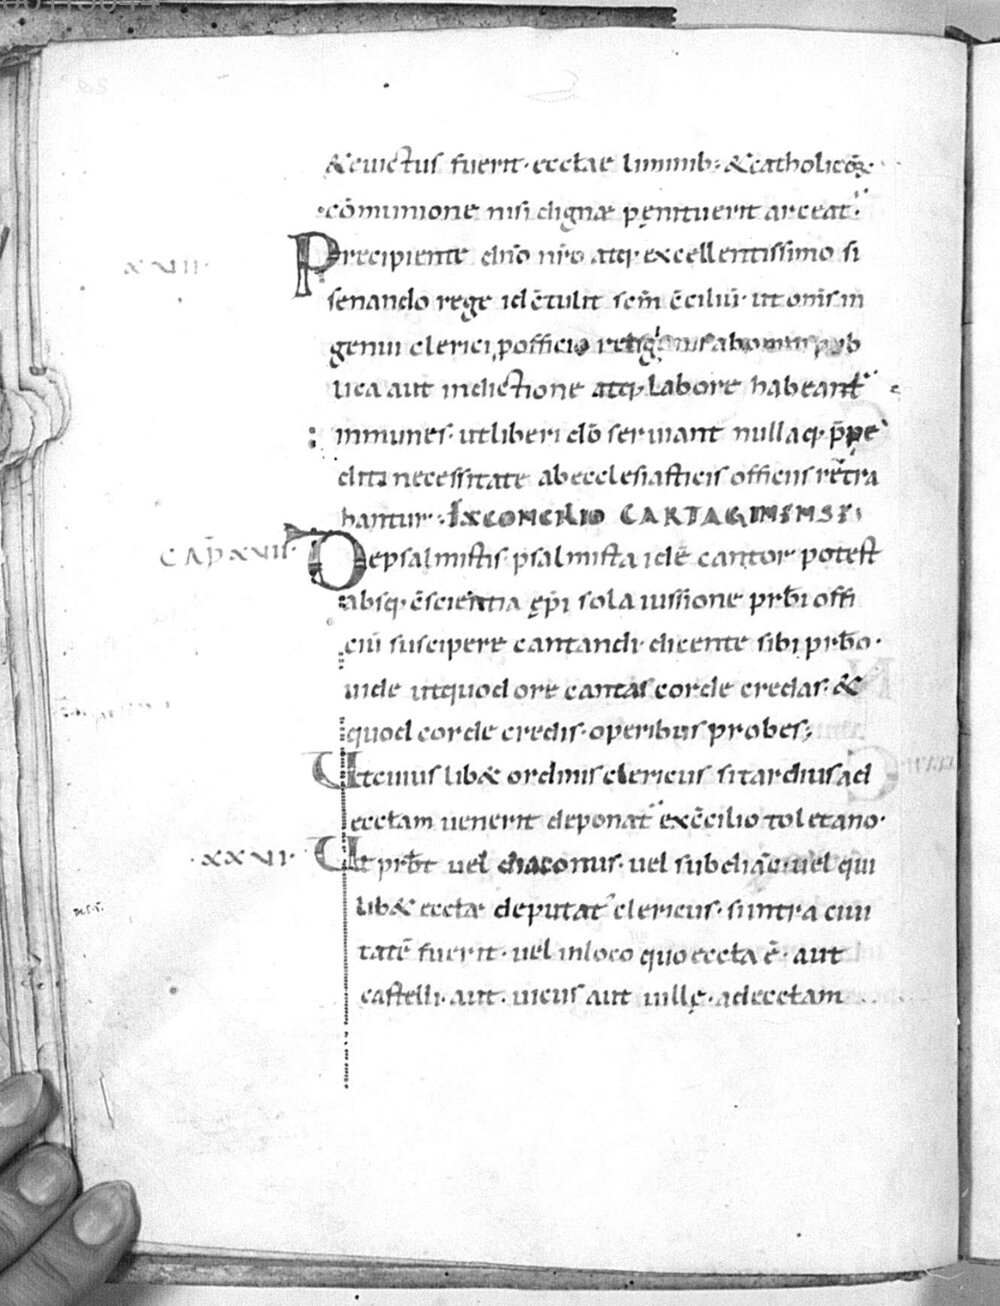 &euictus fuerit· ecctae liminib; &catholicoꝝ·
·cōmunione nisi dignæ pęnituerit arceat᷑·
xxiii·
Precipiente dn̄o nr̄o atq· excellentissimo si
senando rege id ētulit sem̄ c̄ciliū· ut om̄s in
genui clerici p officio
lica aut indictione atq· labore habeant᷑
inmunes· ut liberi dō seruiant nullaq· p̄pe
diti necessitate ab ecclesiasticis officiis ret̄ra
hantur· EX CONCILIO CARTAGINENSI;
CAP̄ XXII·
De psalmistis· psalmista id ē cantor potest
absq· c̄scientia ęp̄i sola iussione prb̄i offi
ciū suscipere cantandi· dicente sibi prb̄o·
uide ut quod ore cantas corde credas· &
quod corde credis· operibus probes;
Ut cuius lib& ordinis clericus si tardius ad
ecctam uenerit deponat᷑ ex c̄cilio toletano·
·xxvi·
Ut prb̄t uel diaconus· uel subdiac̄· uel qui
lib& ecctæ deputat᷑ clericus· si intra ciui
tatē fuerit· uel in loco quo eccta ē· aut
castelli· aut· uicus aut uillę· ad ecctam